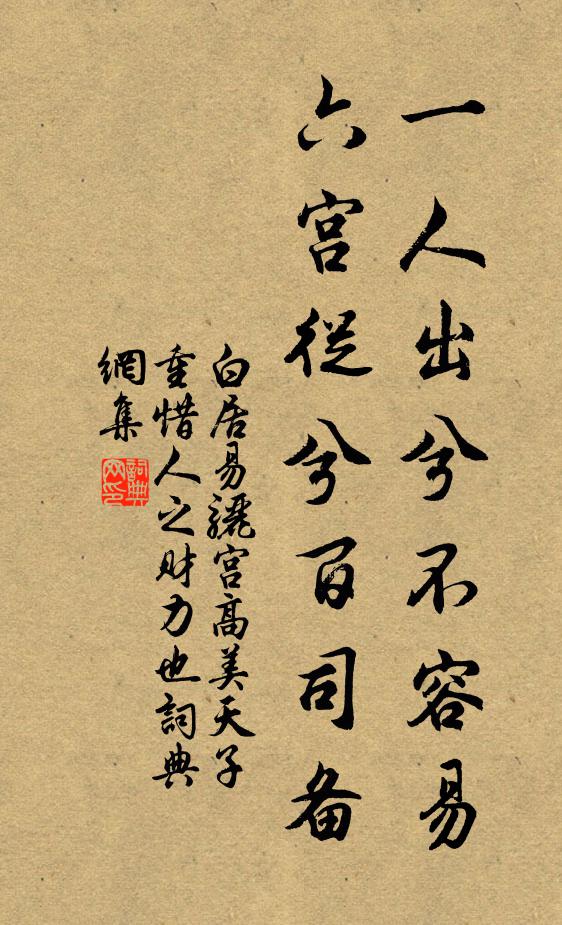 一人出兮不容易
六宫從兮百司备
白居易驪宫高美天子
重惜人之财力也詞典
網集
詞典
网印